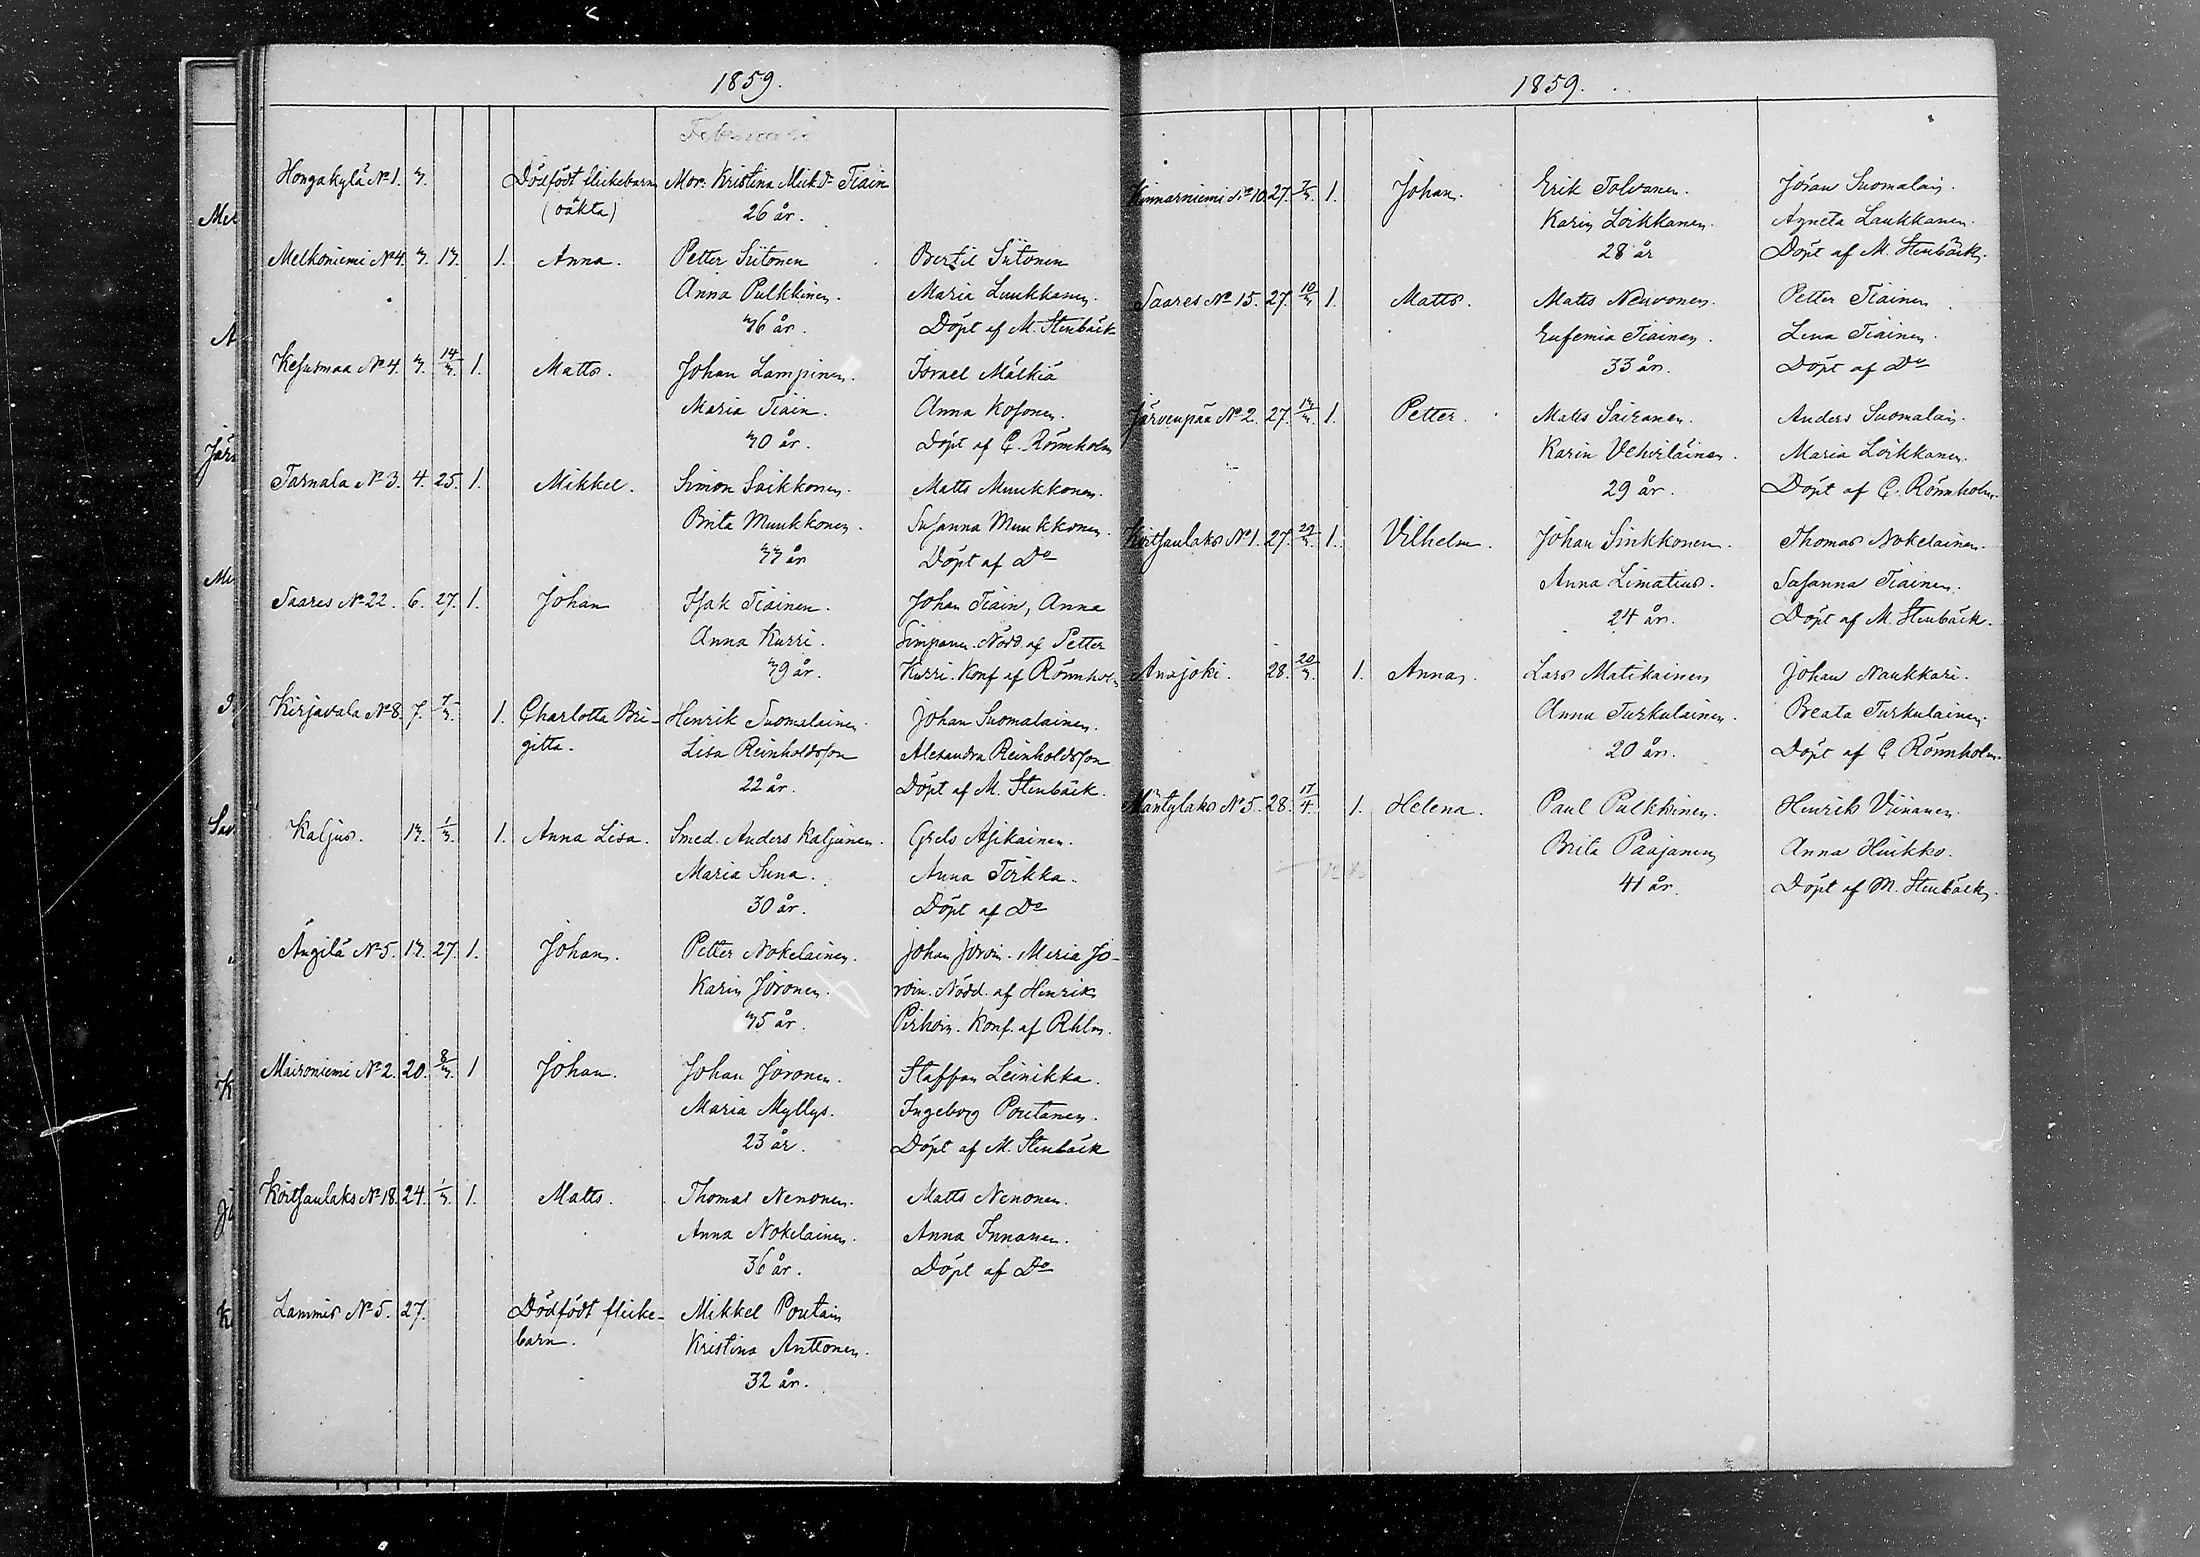 1859.
Februari
Hongakylä No 1. 3. Dödfödt flickebarn Mor: Kristina Mickd. Tiain
(oäkta) 26 år.
Melkoniemi No 4. 3. 13. 1. Anna. Petter Siitonen Bertil Siitonen
Anna Pulkkinen. Maria Luukkanen.
36 år. Döpt af M. Stenbäck
Kesusmaa No 4. 3. 14/3. 1. Matts. Johan Lampinen. Israel Mälkiä
Maria Tiain. Anna Kosonen.
30 år. Döpt af C. Rönnholm
Tarnala No 3. 4. 25. 1. Mikkel. Simon Saikkonen. Matts Muukkonen.
Brita Muukkonen. Susanna Muukkonen.
33 år Döpt af Do
Saares No 22. 6. 27. 1. Johan Isak Tiainen. Johan Tiain, Anna
Anna Kurri. Simpanen. Nödd. af Petter
39 år. Kurri. Konf af Rönnholm
Kirjavala No 8. 7. 7/3. 1. Charlotta Bri- Henrik Suomalainen. Johan Suomalainen.
gitta. Lisa Reinholdsson Alexandra Reinholdsson
22 år. Döpt af M. Stenbäck.
Kaljus. 13. 1/3. 1. Anna Lisa. Smed. Anders Kaljunen. Grels Asikainen.
Maria Suna. Anna Torkka.
30 år. Döpt af Do
Ängilä No 5. 13. 27. 1. Johan. Petter Nokelainen. Johan Joroin. Maria Jo-
Karin Joronen. roin. Nödd. af Henrik
35 år. Pirhoin. Konf. af Rhlm.
Maironiemi No 2. 20. 8/3. 1 Johan. Johan Joronen. Staffan Leinikka.
Maria Myllys. Ingeborg Poutanen.
23 år. Döpt af M. Stenbäck
Koitsanlaks No 18. 24. 1/3. 1. Matts. Thomas Nenonen. Matts Nenonen.
Anna Nokelainen. Anna Innanen.
36 år. Döpt af Do
Lammis No 5. 27. Dödfödt flicke- Mikkel Poutain
barn. Kristina Anttonen.
32 år.
1859.
Kinnarniemi No 10. 27. 7/3. 1. Johan. Erik Tolvanen. Jöran Suomalain.
Karin Loikkanen. Agneta Laukkanen.
28 år Döpt af M. Stenbäck.
Saares No 15. 27. 10/3 1. Matts. Matts Neuvonen. Petter Tiainen
Eufemia Tiainen. Lena Tiainen.
33 år. Döpt af Do
Järvenpää No 2. 27. 13/3. 1. Petter. Matts Sairanen. Anders Suomalain.
Karin Vehviläinen. Maria Loikkanen.
29 år. Döpt af C. Rönnholm.
Koitsanlaks No 1. 27. 29/3. 1. Vilhelm. Johan Sinkkonen. Thomas Nokelainen.
Anna Limatius. Susanna Tiainen.
24 år. Döpt af M. Stenbäck.
Anajoki. 28. 20/3. 1. Anna. Lars Matikainen Johan Naukkari.
Anna Turkulainen. Beata Turkulainen.
20 år. Döpt af C Rönnholm.
Mäntylaks No 5. 28. 17/4. 1. Helena. Paul Pulkkinen. Henrik Viinanen.
Brita Paajanen Anna Huikko.
41 år. Döpt af M. Stenbäck.